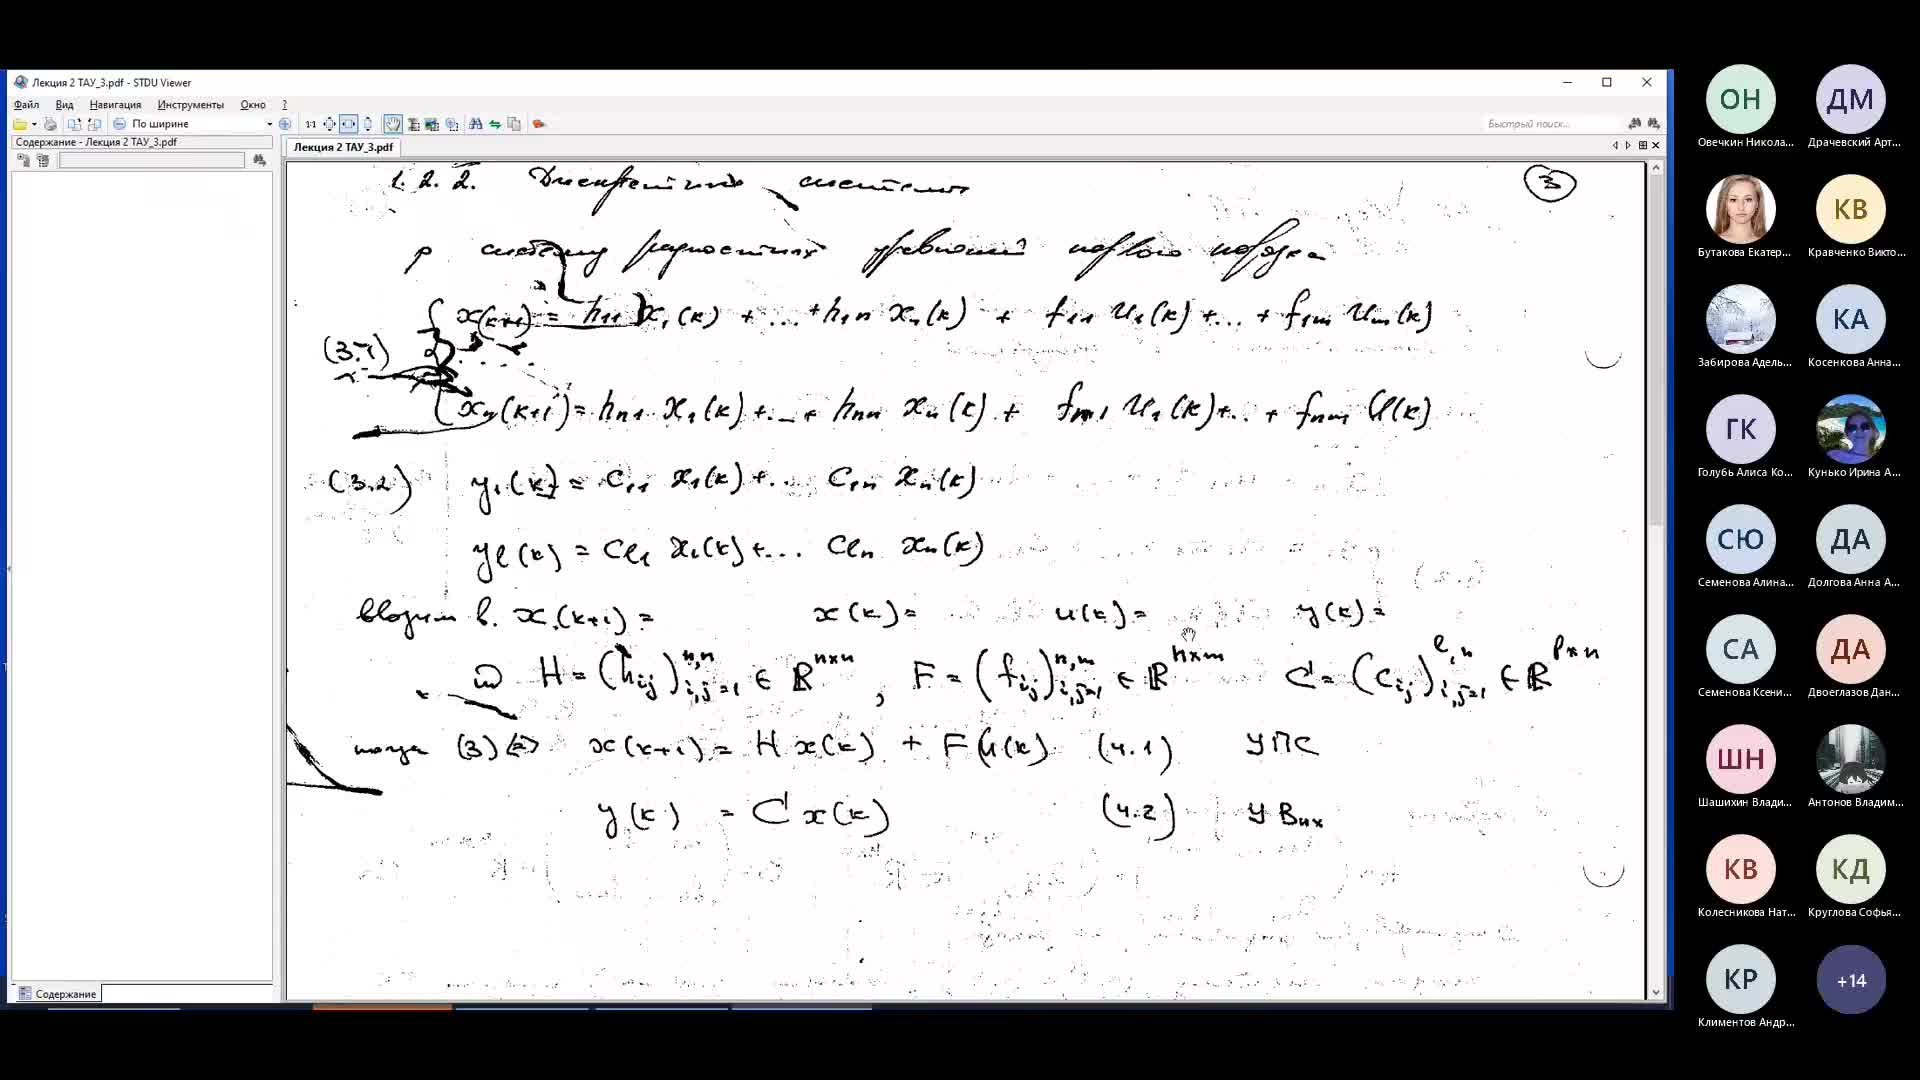 Лекция 2 ТАУ_3.pdf - STDU Viewer
Файл Вид Навигация Инструменты Окно ?
По ширине
1:1
Быстрый поиск...
Содержание - Лекция 2 ТАУ_3.pdf
Лекция 2 ТАУ_3.pdf
1.2.2. Дискретные системы
3
р систему разностных уравнений первого порядка
x(k+1) = h11 x1(k) + ... + h1n xn(k) + f11 u1(k) + ... + f1m um(k)
(3.1)
xn(k+1) = hn1 x1(k) + ... + hnn xn(k) + fn1 u1(k) + ... + fnm u(k)
(3.2) y1(k) = c11 x1(k) + ... c1n xn(k)
yl(k) = cl1 x1(k) + ... cln xn(k)
вводим в. x(k+1) = x(k) = u(k) = y(k) =
H = (hij)^{n,n}_{i,j=1} ∈ ℝ^{n×n}, F = (fij)^{n,m}_{i,j=1} ∈ ℝ^{n×m} C = (cij)^{l,n}_{i,j=1} ∈ ℝ^{l×n}
тогда (3) <=> x(k+1) = H x(k) + F u(k) (4.1) УПС
y(k) = C x(k) (4.2) У Вых
Содержание
ОН
ДМ
Овечкин Никола...
Драчевский Арт...
КВ
Бутакова Екатер...
Кравченко Викто...
КА
Забирова Адель...
Косенкова Анна...
ГК
Голубь Алиса Ко...
Кунько Ирина А...
СЮ
ДА
Семенова Алина...
Долгова Анна А...
СА
ДА
Семенова Ксени...
Двоеглазов Дан...
ШН
Шашихин Влади...
Антонов Владим...
КВ
КД
Колесникова Нат...
Круглова Софья...
КР
+14
Климентов Андр...